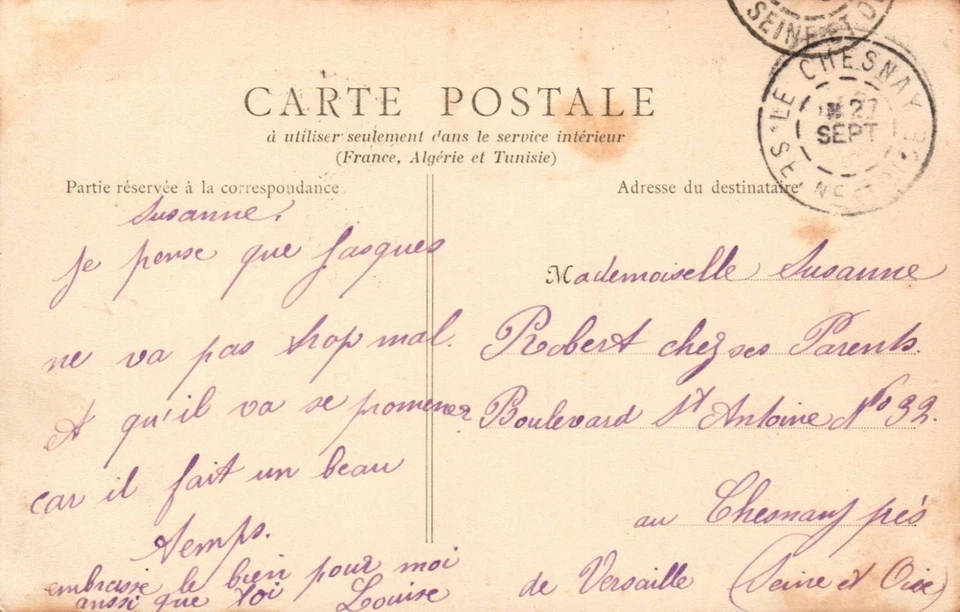 SEINE ET O
LE CHESNAY
27
SEPT
SEINE ET OISE
CARTE POSTALE
à utiliser seulement dans le service intérieur
(France, Algérie et Tunisie)
Partie réservée à la correspondance
Susanne.
Je pense que Jasques
ne va pas trop mal.
et qu'il va se promener
car il fait un beau
temps.
embrasse le bien pour moi
aussi que toi Louise
Adresse du destinataire
Mademoiselle Susanne
Robert chez ses Parents.
Boulevard St Antoine No 92.
au Chesnay près
de Versaille (Seine et Oise)